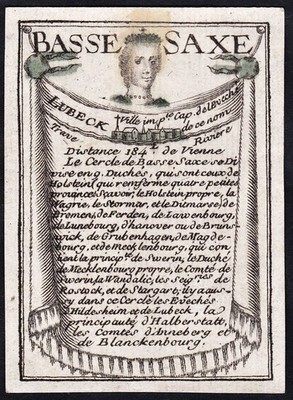 BASSE SAXE
LUBECK Ville imp.le Cap. de l'Evêché
de ce nom
Trave Rivière
Distance 184 l. de Vienne
Le Cercle de Basse Saxe se Di
vise en 9. Duchés, qui sont ceux de
Holstein (qui renferme quatre petites
provinces Scavoir, le Holstein propre, la
Wagrie, le Stormar, et le Ditmarse) de
Bremen, de Ferden, de Lawenbourg,
de Lunebourg, d'hanover ou de Bruns
wick, de Grubenhagen, de Magde
bourg, et de Mecklenbourg, qui con
tient la princip.te de Swerin, le Duché
de Mecklenbourg propre, le Comté de
Swerin, la Wandalie, les Seig.ries de
Rostock, et de Stargart; il y a aus
sy dans ce Cercle les Evechés
d'Hildesheim et de Lubeck, la
principauté d'Halberstatt,
les Comtés d'Anneberg et
de Blanckenbourg.